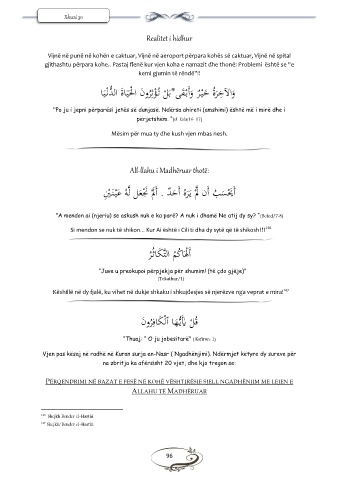 Xhuzi 30
Realitet i hidhur
Vijnë në punë në kohën e caktuar, Vijnë në aeroport përpara kohës së caktuar, Vijnë në spital
gjithashtu përpara kohe.. Pastaj flenë kur vjen koha e namazit dhe thonë: Problemi është se "e
kemi gjumin të rëndë"!!
وَالْآخِرَةُ خَيْرٌ وَأَبْقَى*بَلْ تُؤْثِرُونَ الْحَيَاةَ الدُّنْيَا
"Po ju i jepni përparësi jetës së dunjasë. Ndërsa ahireti (amshimi) është më i mirë dhe i
përjetshëm."
Mësim për mua ty dhe kush vjen mbas nesh.
All-llahu i Madhëruar thotë:
أَيَحْسَبُ أَن لَّمْ يَرَهُ أَحَدٌ . أَلَمْ نَجْعَل لَّهُ عَيْنَيْنِ
"A mendon ai (njeriu) se askush nuk e ka parë? A nuk i dhamë Ne atij dy sy? "(Beled/7-8)
Si mendon se nuk të shikon... Kur Ai është i Cili ti dha dy sytë që të shikosh!!!
أَلْهَاكُمُ التَّكَاثُرُ
"Juve u preokupoi përpjekja për shumim! (të çdo gjëje)"
(Tekathur/1)
Këshillë në dy fjalë, ku vihet në dukje shkaku i shkujdesjes së njerëzve nga veprat e mira!
قُلْ يَا أَيُّهَا الْكَافِرُونَ
"Thuaj: " O ju jobesitarë" (Kafirun 1)
Vjen pas kësaj në radhë në Kuran surja en-Nasr ( Ngadhënjimi). Ndërmjet këtyre dy sureve për
nga zbritja ka afërsisht 20 vjet, dhe kjo tregon se:
PËRQENDRIMI NË BAZAT E FESË NË KOHË VËSHTIRËSIE SJELL NGADHËNJIM ME LEJEN E
ALLAHU TË MADHËRUAR
Shejkh Bender el-Harthi.
Shejkh Bender el-Harthi.
96